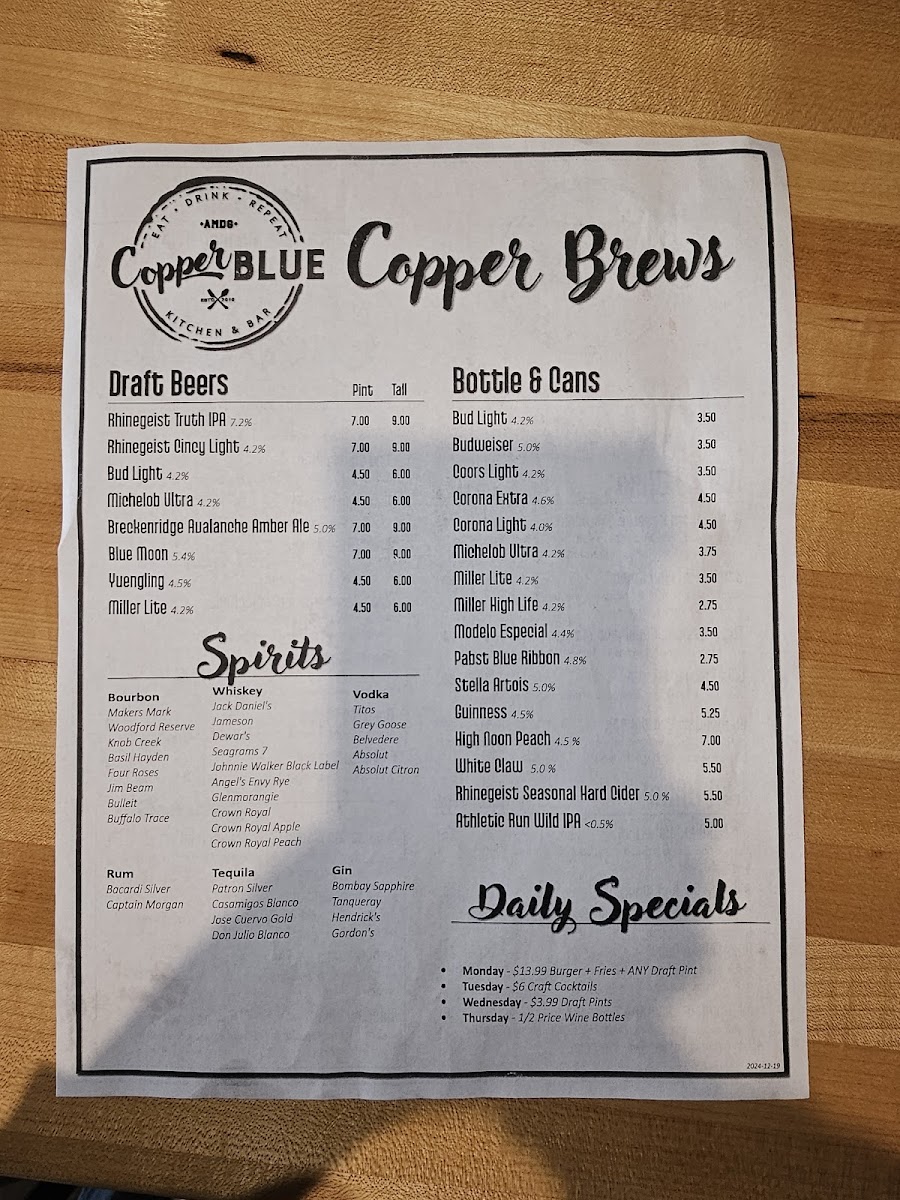 EAT • DRINK • REPEAT
•AMDG•
Copper BLUE
ESTD 2019
KITCHEN & BAR
Copper Brews
Draft Beers Pint Tall
Rhinegeist Truth IPA 7.2% 7.00 9.00
Rhinegeist Cincy Light 4.2% 7.00 9.00
Bud Light 4.2% 4.50 6.00
Michelob Ultra 4.2% 4.50 6.00
Breckenridge Avalanche Amber Ale 5.0% 7.00 9.00
Blue Moon 5.4% 7.00 9.00
Yuengling 4.5% 4.50 6.00
Miller Lite 4.2% 4.50 6.00
Spirits
Bourbon
Makers Mark
Woodford Reserve
Knob Creek
Basil Hayden
Four Roses
Jim Beam
Bulleit
Buffalo Trace
Whiskey
Jack Daniel's
Jameson
Dewar's
Seagrams 7
Johnnie Walker Black Label
Angel's Envy Rye
Glenmorangie
Crown Royal
Crown Royal Apple
Crown Royal Peach
Vodka
Titos
Grey Goose
Belvedere
Absolut
Absolut Citron
Rum
Bacardi Silver
Captain Morgan
Tequila
Patron Silver
Casamigos Blanco
Jose Cuervo Gold
Don Julio Blanco
Gin
Bombay Sapphire
Tanqueray
Hendrick's
Gordon's
Bottle & Cans
Bud Light 4.2% 3.50
Budweiser 5.0% 3.50
Coors Light 4.2% 3.50
Corona Extra 4.6% 4.50
Corona Light 4.0% 4.50
Michelob Ultra 4.2% 3.75
Miller Lite 4.2% 3.50
Miller High Life 4.2% 2.75
Modelo Especial 4.4% 3.50
Pabst Blue Ribbon 4.8% 2.75
Stella Artois 5.0% 4.50
Guinness 4.5% 5.25
High Noon Peach 4.5 % 7.00
White Claw 5.0 % 5.50
Rhinegeist Seasonal Hard Cider 5.0 % 5.50
Athletic Run Wild IPA <0.5% 5.00
Daily Specials
• Monday - $13.99 Burger + Fries + ANY Draft Pint
• Tuesday - $6 Craft Cocktails
• Wednesday - $3.99 Draft Pints
• Thursday - 1/2 Price Wine Bottles
2024-12-19